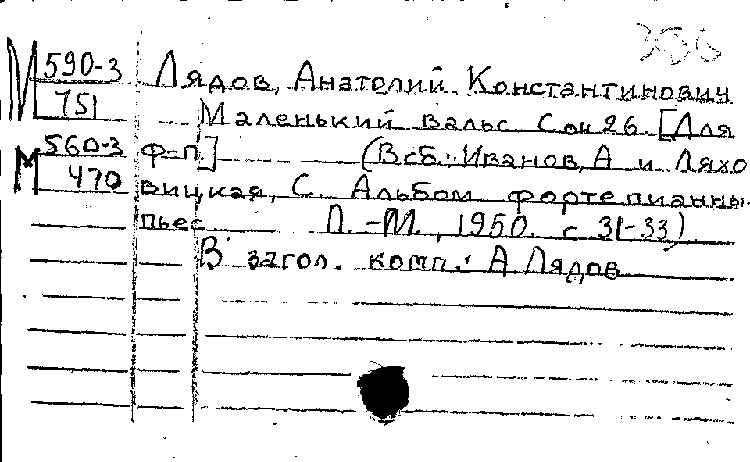 356
М 590-3 Лядов, Анатолий Константинович
751 Маленький вальс Соч 26. [Для
М 560-3 ф-п] (В сб.: Иванов, А и Ляхо
470 вицкая, С. Альбом фортепианных
пьес Л.-М., 1950. с 31-33)
В загол. комп.: А Лядов